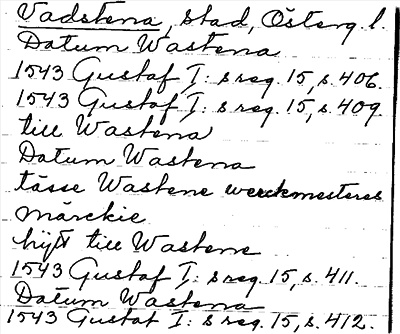 Vadstena, stad, Österg. l.
Datum Wastena
1543 Gustaf I: s reg. 15, s. 406.
1543 Gustaf I: s reg. 15, s. 409
till Wastena
Datum Wastena
tässe Wastene werckmesteres
märckie
hijtt till Wastene
1543 Gustaf I: s reg. 15, s. 411.
Datum Wastena
1543 Gustaf I: s reg. 15, s. 412.